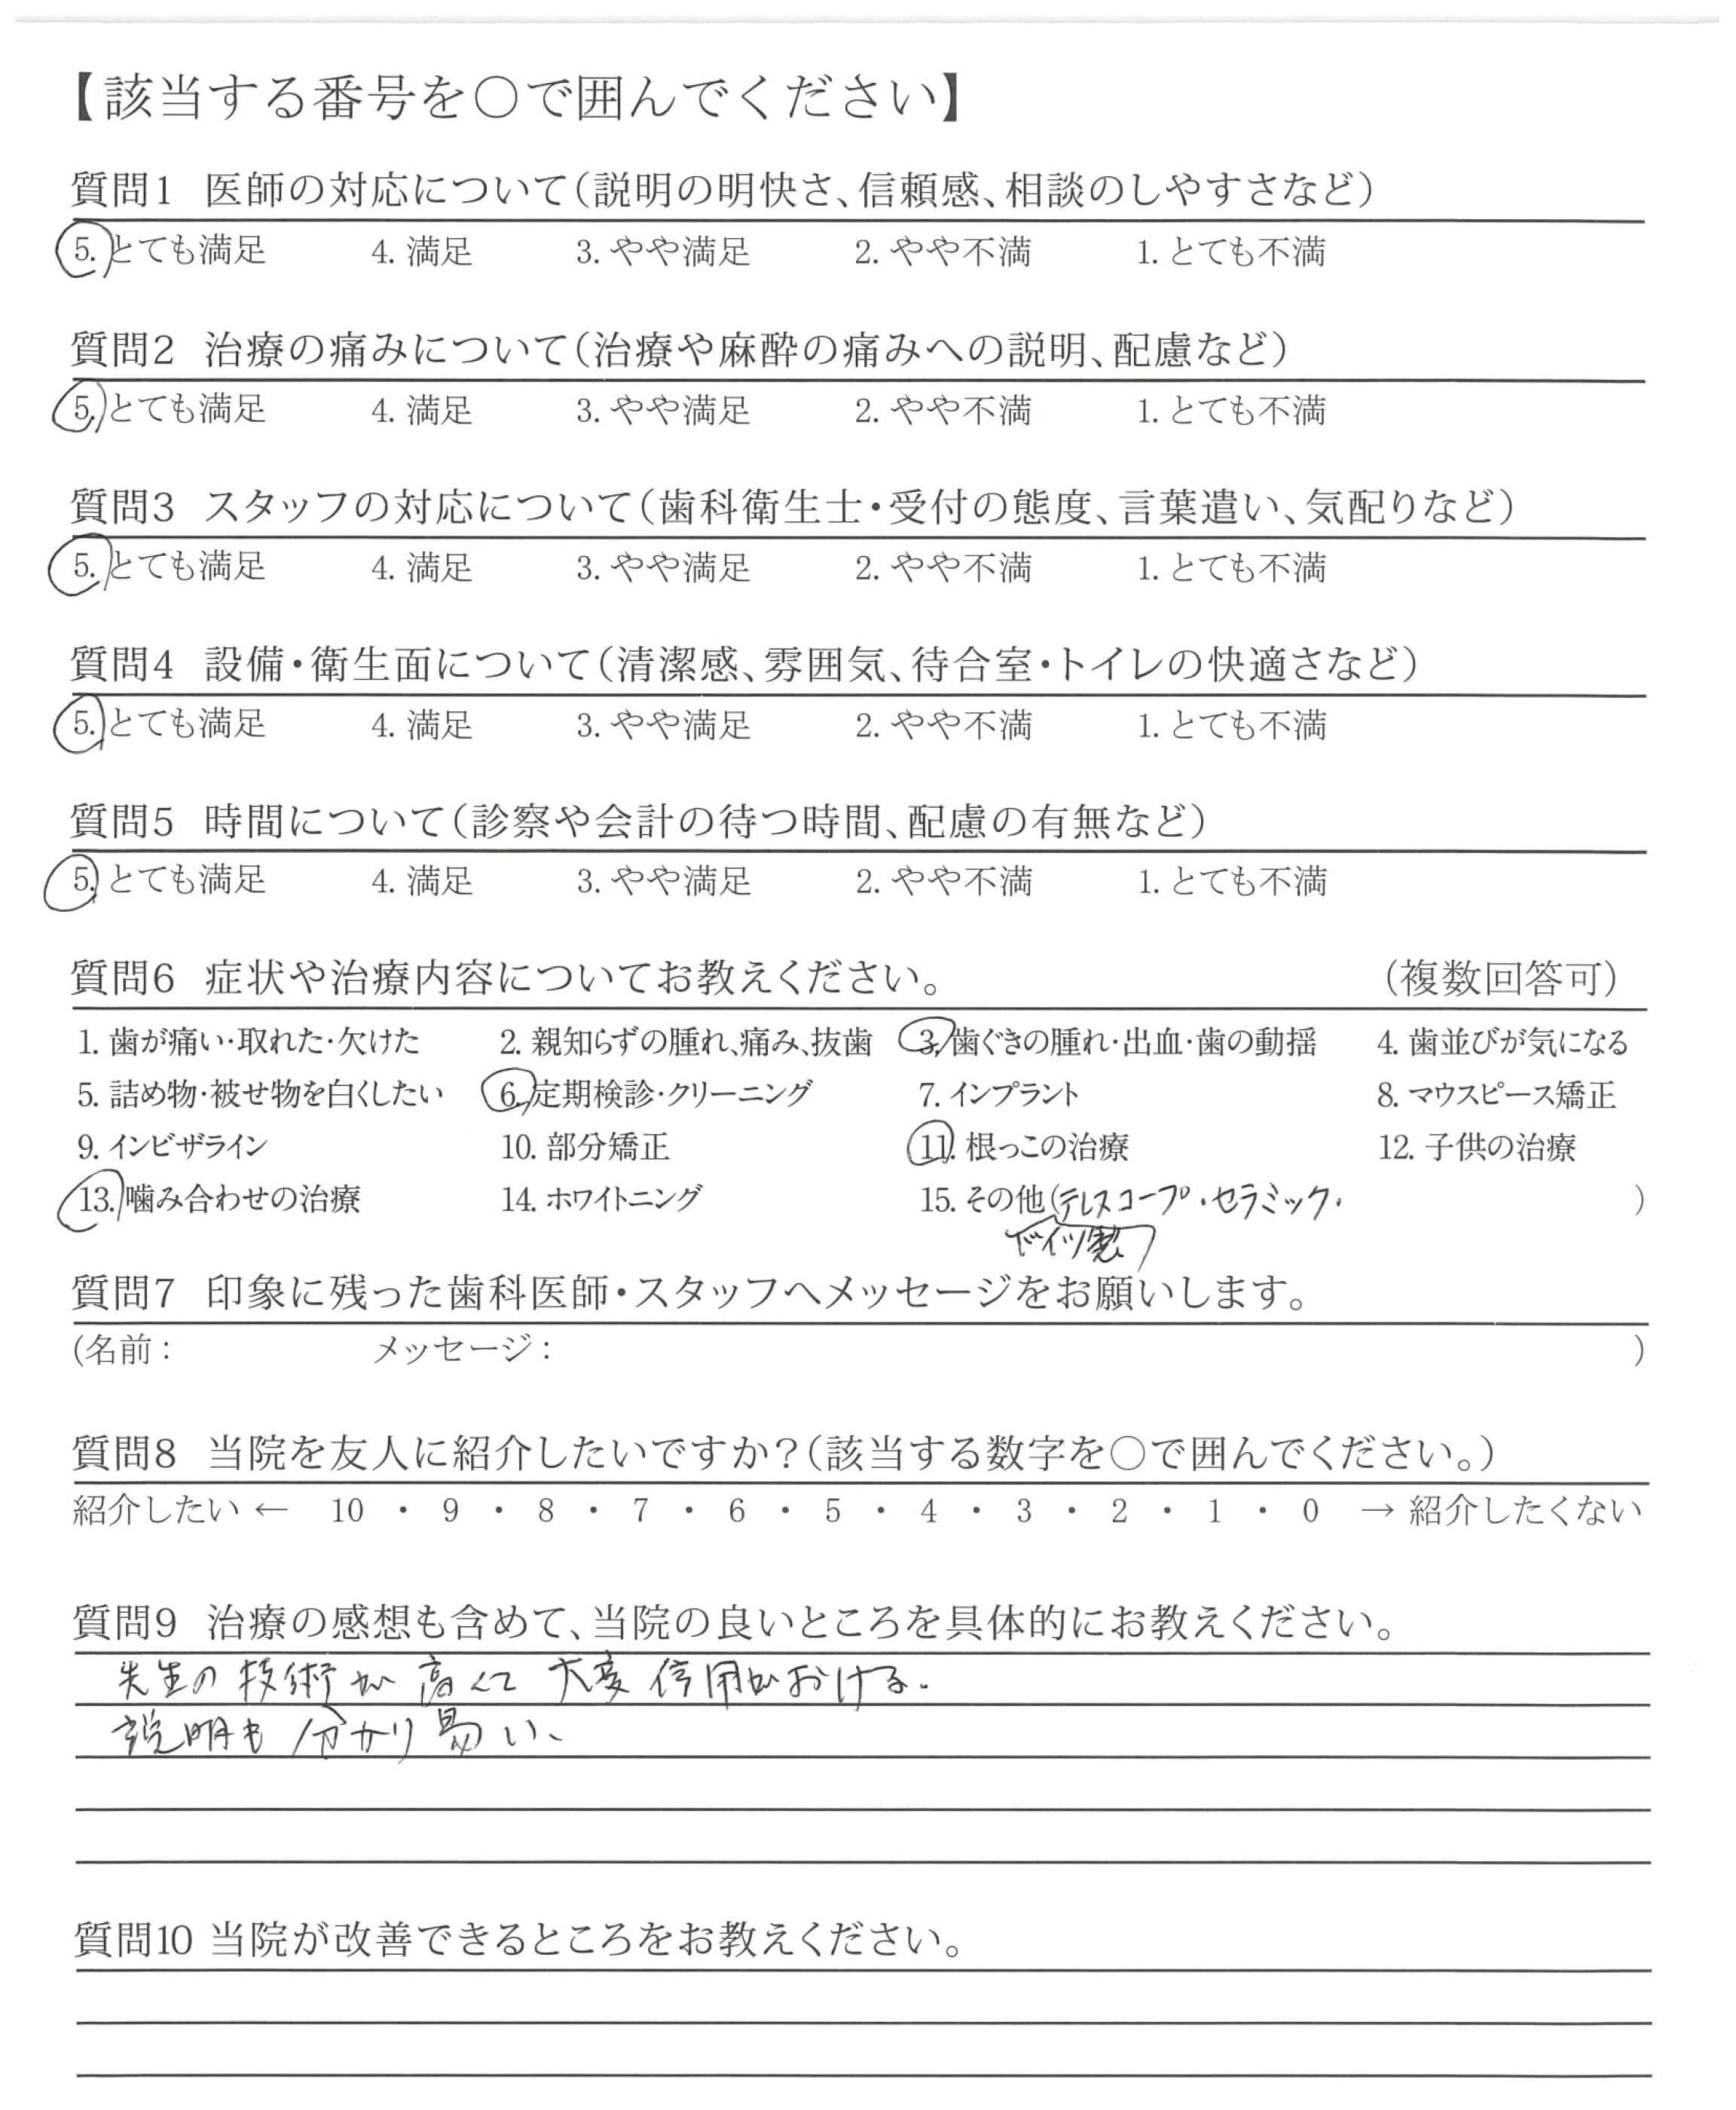 【該当する番号を○で囲んでください】
質問1 医師の対応について(説明の明快さ、信頼感、相談のしやすさなど)
5. とても満足 4. 満足 3. やや満足 2. やや不満 1. とても不満
質問2 治療の痛みについて(治療や麻酔の痛みへの説明、配慮など)
5. とても満足 4. 満足 3. やや満足 2. やや不満 1. とても不満
質問3 スタッフの対応について(歯科衛生士・受付の態度、言葉遣い、気配りなど)
5. とても満足 4. 満足 3. やや満足 2. やや不満 1. とても不満
質問4 設備・衛生面について(清潔感、雰囲気、待合室・トイレの快適さなど)
5. とても満足 4. 満足 3. やや満足 2. やや不満 1. とても不満
質問5 時間について(診察や会計の待つ時間、配慮の有無など)
5. とても満足 4. 満足 3. やや満足 2. やや不満 1. とても不満
質問6 症状や治療内容についてお教えください。 (複数回答可)
1. 歯が痛い・取れた・欠けた 2. 親知らずの腫れ、痛み、抜歯 3. 歯ぐきの腫れ・出血・歯の動揺 4. 歯並びが気になる
5. 詰め物・被せ物を白くしたい 6. 定期検診・クリーニング 7. インプラント 8. マウスピース矯正
9. インビザライン 10. 部分矯正 11. 根っこの治療 12. 子供の治療
13. 噛み合わせの治療 14. ホワイトニング 15. その他(テレスコープ・セラミック・ )
ドイツ製
質問7 印象に残った歯科医師・スタッフへメッセージをお願いします。
(名前: メッセージ: )
質問8 当院を友人に紹介したいですか?(該当する数字を○で囲んでください。)
紹介したい ← 10 ・ 9 ・ 8 ・ 7 ・ 6 ・ 5 ・ 4 ・ 3 ・ 2 ・ 1 ・ 0 → 紹介したくない
質問9 治療の感想も含めて、当院の良いところを具体的にお教えください。
先生の技術が高くて大変信用がおける。
説明も分かり易い、
質問10 当院が改善できるところをお教えください。